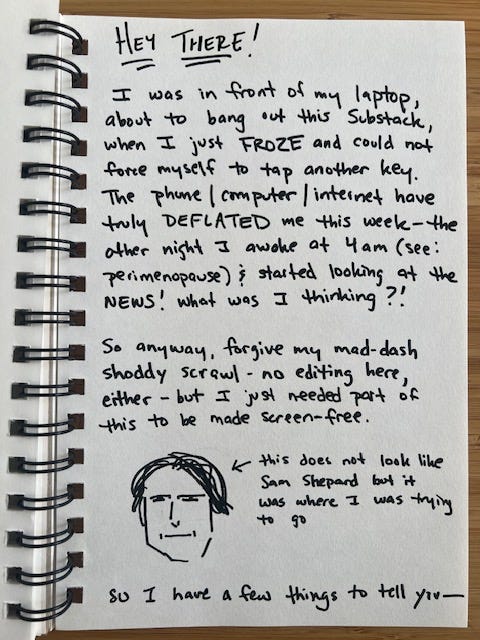 HEY THERE!
I was in front of my laptop,
about to bang out this Substack,
when I just FROZE and could not
force myself to tap another key.
The phone/computer/internet have
truly DEFLATED me this week-the
other night I awoke at 4am (see:
perimenopause) & started looking at the
NEWS! what was I thinking?!
So anyway, forgive my mad-dash
shoddy scrawl - no editing here,
either - but I just needed part of
this to be made screen-free.
← this does not look like
Sam Shepard but it
was where I was trying
to go
So I have a few things to tell you—